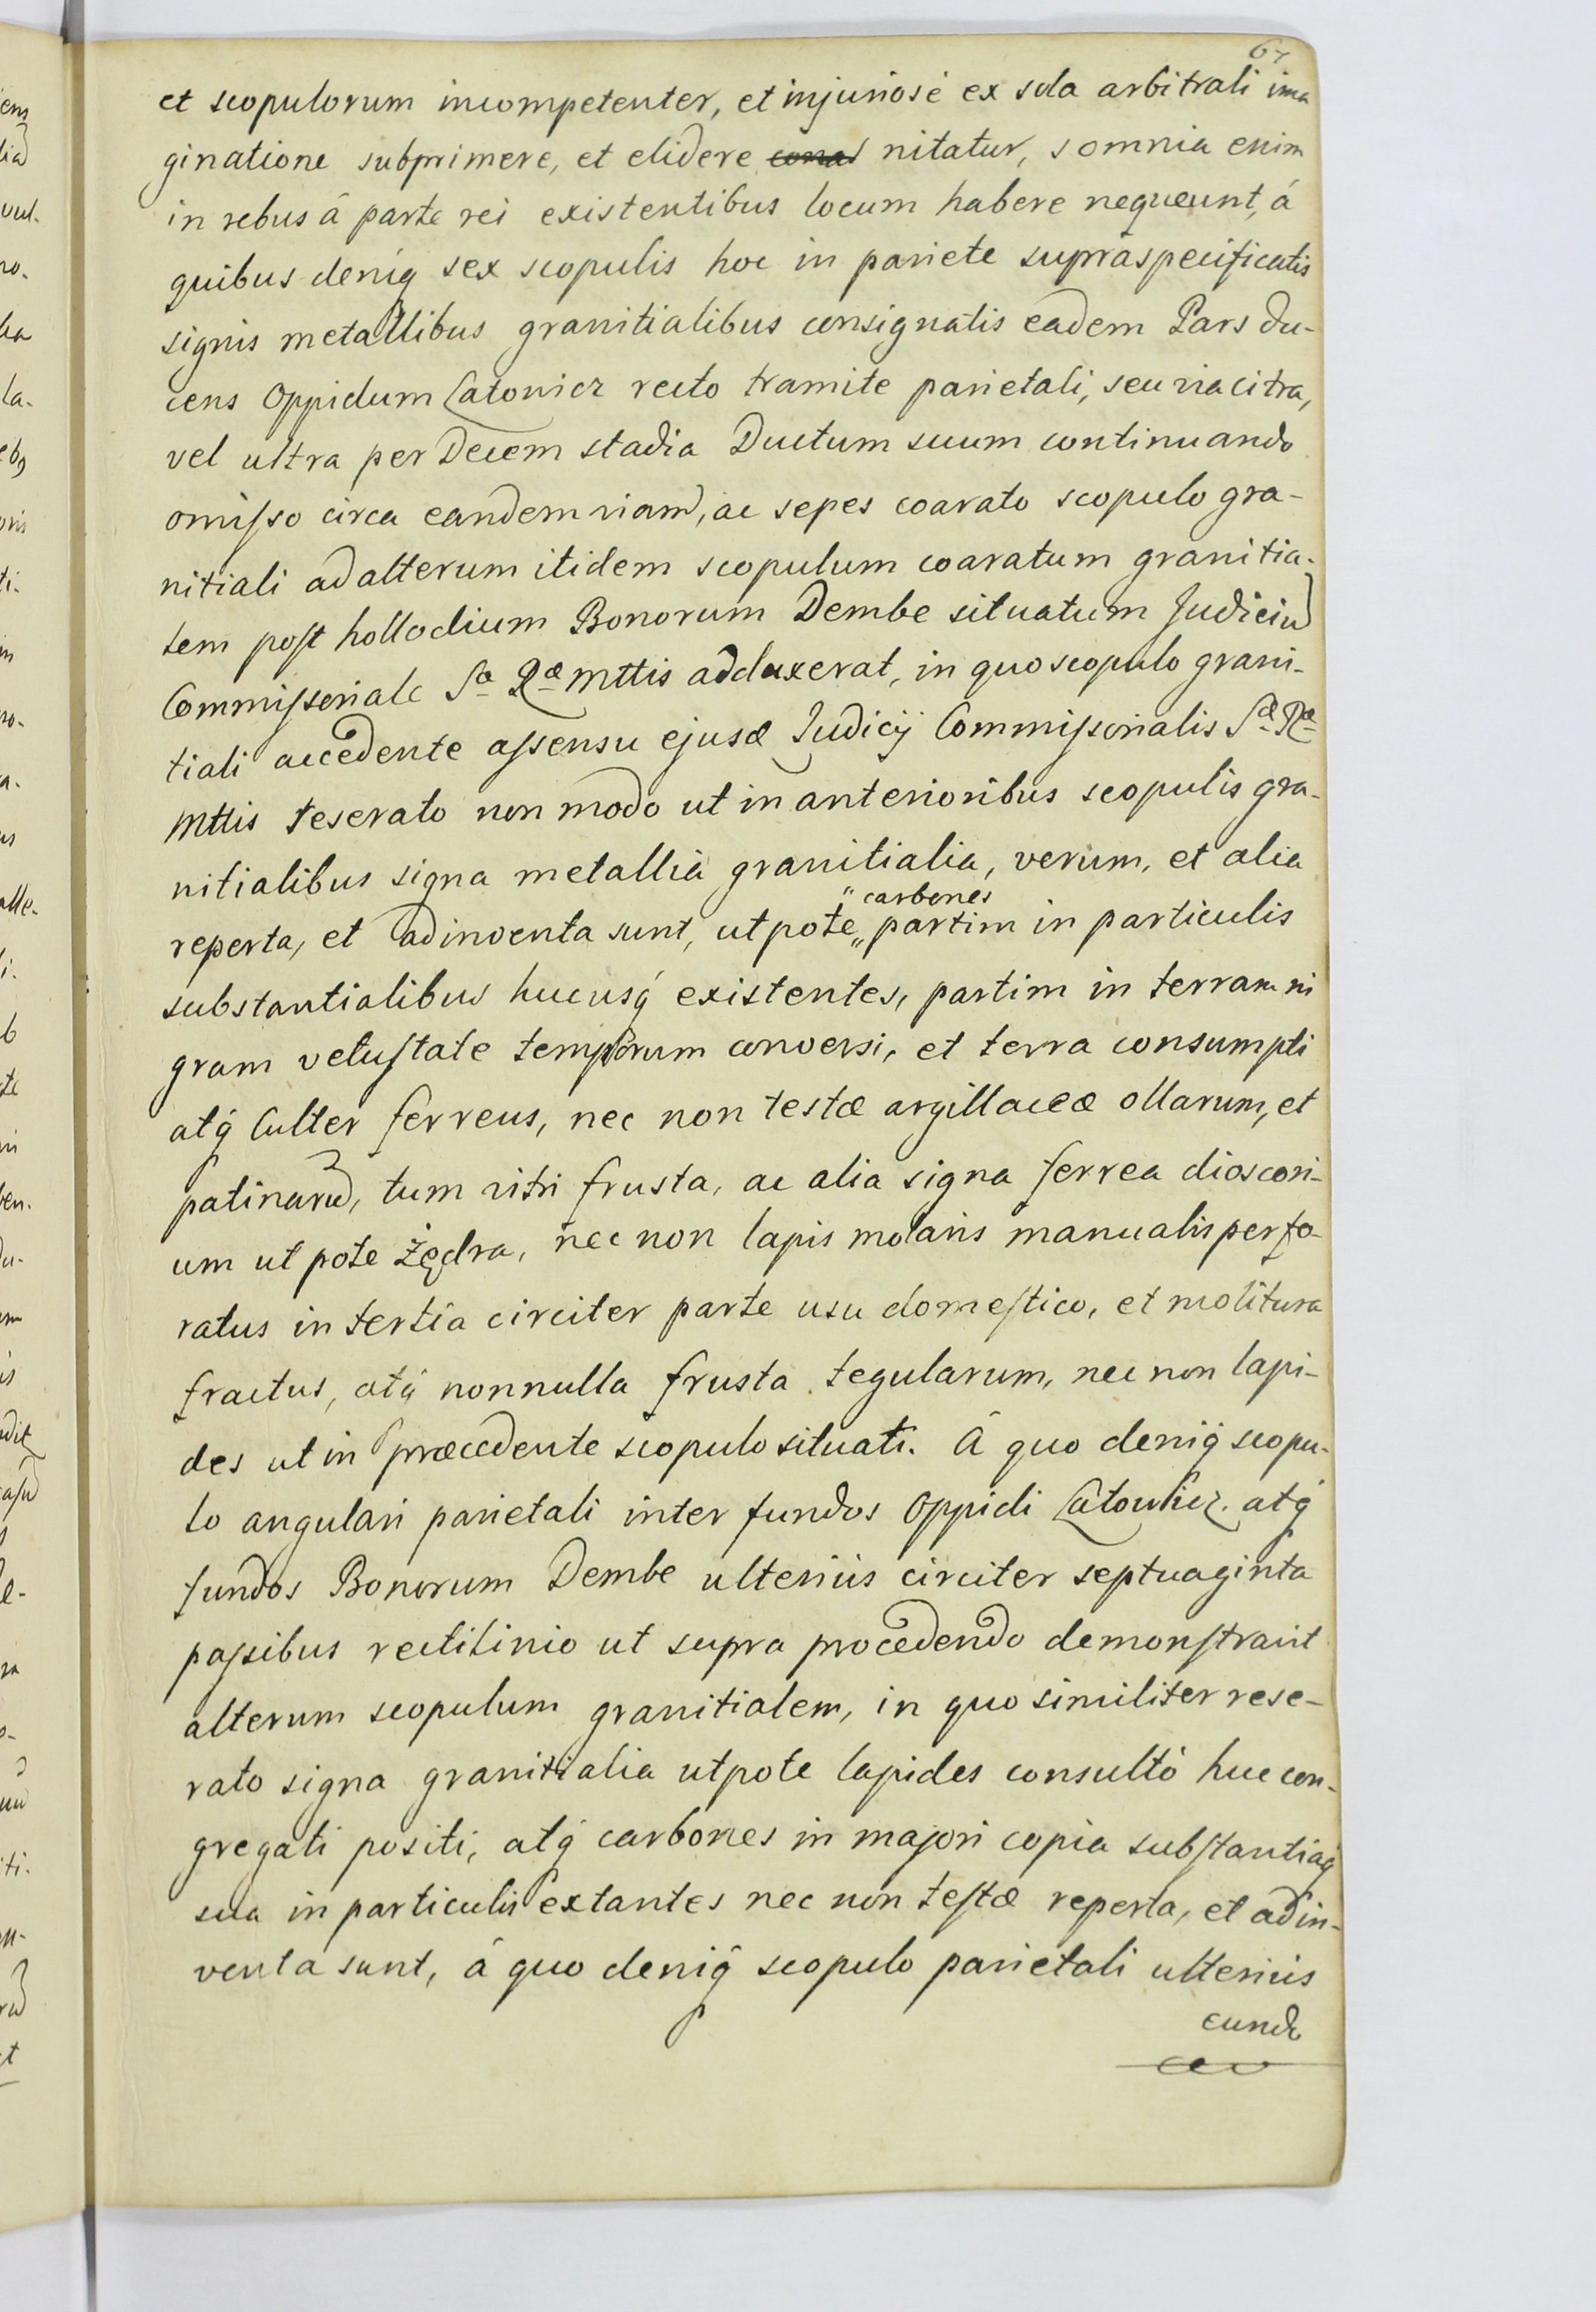 67
et scopulorum incompetenter, et injuriosè ex sola arbitrali ima
ginatione subprimere, et elidere nitatur, somnia enim
in rebus â parte rei existentibus locum habere nequeunt, á
quibus deniq sex scopulis hoc in pariete supràspecificatis
signis metallibus granitialibus consignatis eadem Pars du-
cens Oppidum Latowicz recto tramite parietali, seu via citra,
vel ultra per Decem stadia Ductum suum continuando
omisso circa eandem viam, ac sepes coarato scopulo gra-
nitiali ad alterum itidem scopulum coaratum granitia-
lem post hollodium Bonorum Dembe situatum Judiciu
Commissoriale Sæ Ræ Mttis adduxerat, in quo scopulo grani-
tiali accedente assensu ejusd Judicij Commissorialis Sæ Ræ
Mttis reserato non modo ut in anterioribus scopulis gra-
nitialibus signa metallia granitialia, verum, et alia
" carbones
reperta, et adinventa sunt, utpote „ partim in particulis
substantialibus hucusq́ existentes, partim in terram ni
gram vetustate temporum conversi, et terra consumpti
atq́ Culter ferreus, nec non testæ argillaceæ ollarum, et
patinaru, tum vitri frusta, ac alia signa ferrea dioscori-
um utpote żędra, nec non lapis molaris manualis perfo-
ratus in tertia circiter parte usu domestico, et molitura
fractus, atq́ nonnulla frusta tegularum, nec non lapi-
des ut in præcedente scopulo situati. Â quo deniq̃ scopu-
lo angulari parietali inter fundos Oppidi Latowicz. atq́
fundos Bonorum Dembe ulteriùs circiter septuaginta
passibus rectilinio ut supra procedendo demonstravit
alterum scopulum granitialem, in quo similiter rese-
rato signa granitialia utpote lapides consultò huc con-
gregati positi, atq́ carbones in majori copia substantiaq́
sua in particulis extantes nec non testæ reperta, et adin-
venta sunt, â quo deniq̃ scopulo parietali ulteriùs
eundo